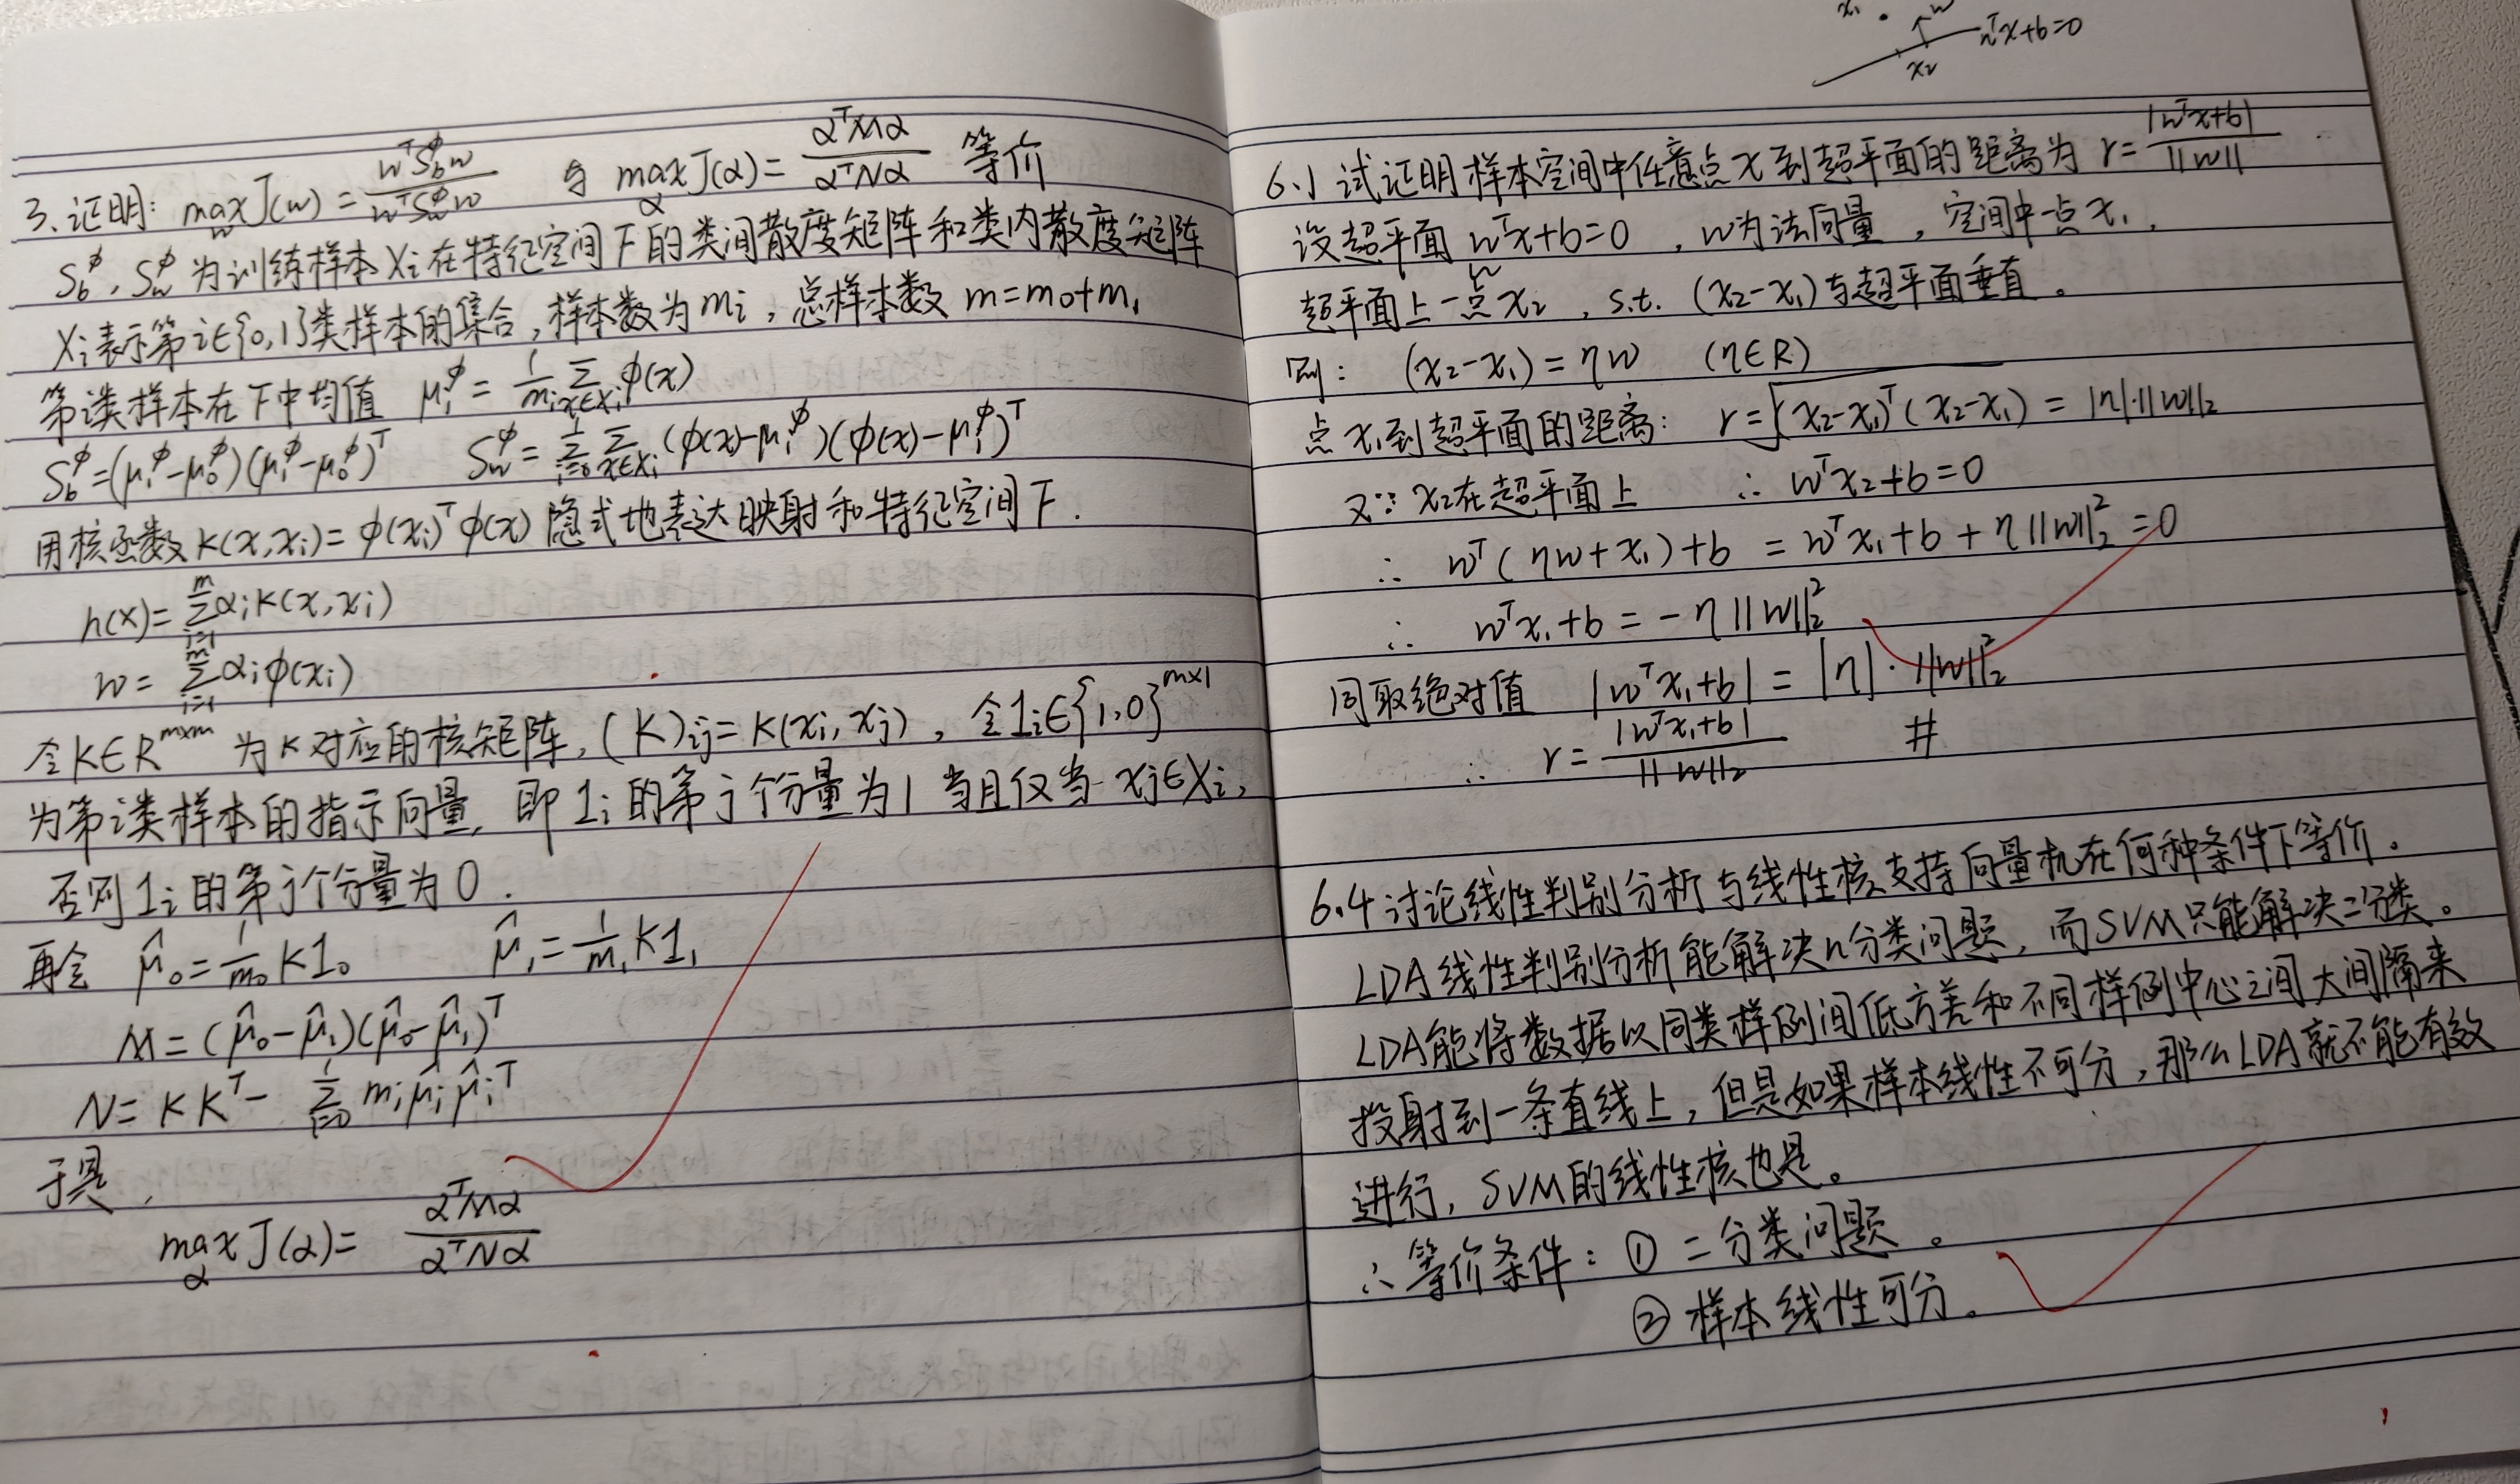 3.证明: max_w J(w) = w^T S_b^φ w / w^T S_w^φ w 与 max_α J(α) = α^T M α / α^T N α 等价
S_b^φ, S_w^φ 为训练样本 X_i 在特征空间 F 的类间散度矩阵和类内散度矩阵
X_i 表示第 i∈{0,1}类样本的集合,样本数为 m_i, 总样本数 m=m_0+m_1
第i类样本在 F 中均值 μ_i^φ = 1/m_i Σ_{x∈X_i} φ(x)
S_b^φ = (μ_1^φ-μ_0^φ)(μ_1^φ-μ_0^φ)^T S_w^φ = Σ_{i=0}^1 Σ_{x∈X_i} (φ(x)-μ_i^φ)(φ(x)-μ_i^φ)^T
用核函数 K(x,x_i) = φ(x_i)^T φ(x) 隐式地表达映射和特征空间 F.
h(x) = Σ_{i=1}^m α_i K(x,x_i)
w = Σ_{i=1}^m α_i φ(x_i)
令K∈R^{m×m} 为 K 对应的核矩阵, (K)_ij = K(x_i, x_j), 令1_i∈{1,0}^{m×1}
为第i类样本的指示向量, 即 1_i 的第 j 个分量为1 当且仅当 x_j∈X_i,
否则 1_i 的第 j 个分量为 0.
再令 μ̂_0 = 1/m_0 K1_0 μ̂_1 = 1/m_1 K1_1
M = (μ̂_0-μ̂_1)(μ̂_0-μ̂_1)^T
N = KK^T - Σ_{i=0}^1 m_i μ̂_i μ̂_i^T
于是,
max_α J(α) = α^T M α / α^T N α
x_1 w
w^T x+b=0
x_2
6.1 试证明样本空间中任意点 x 到超平面的距离为 r = |w^T x+b| / ||w||
设超平面 w^T x+b=0 , w为法向量 , 空间中一点 x_1 ,
超平面上一点 x_2 , s.t. (x_2-x_1) 与超平面垂直。
则: (x_2-x_1) = ηw (η∈R)
点 x_1 到超平面的距离: r = √(x_2-x_1)^T (x_2-x_1) = |η|·||w||_2
又∵ x_2在超平面上 ∴ w^T x_2+b=0
∴ w^T (ηw+x_1)+b = w^T x_1+b+η||w||_2^2 = 0
∴ w^T x_1+b = -η||w||_2^2
同取绝对值 |w^T x_1+b| = |η|·||w||_2^2
∴ r = |w^T x_1+b| / ||w||_2 #
6.4 讨论线性判别分析与线性核支持向量机在何种条件下等价.
LDA 线性判别分析能解决n分类问题, 而SVM只能解决二分类。
LDA能将数据以同类样例间低方差和不同样例中心之间大间隔来
投射到一条直线上, 但是如果样本线性不可分, 那么LDA就不能有效
进行, SVM的线性核也是。
∴ 等价条件: ① 二分类问题。
② 样本线性可分。